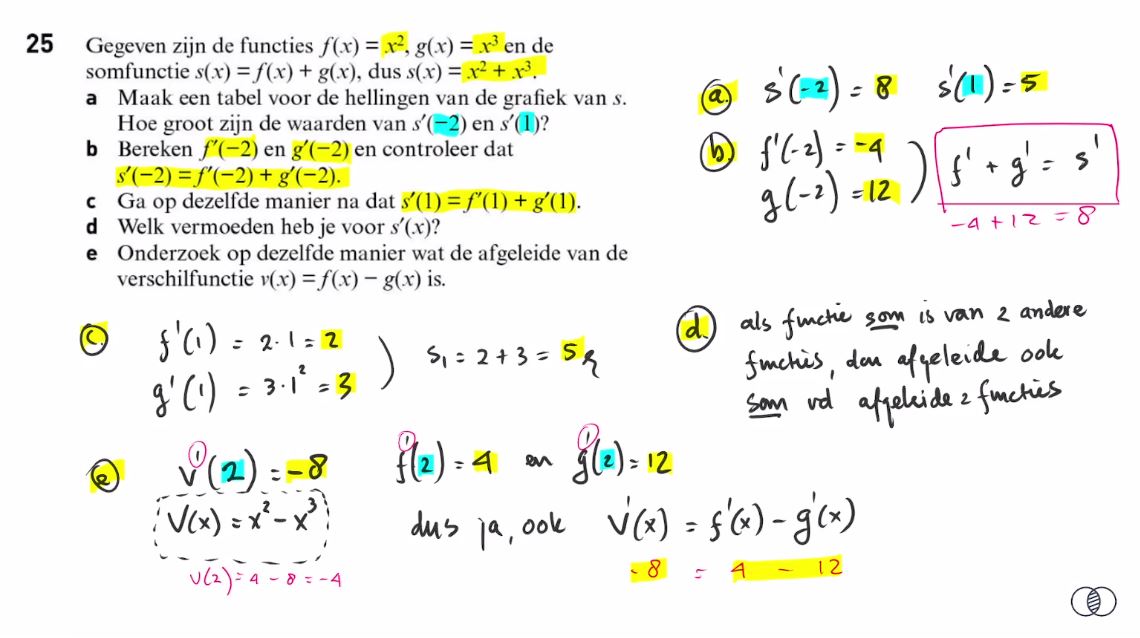 25 Gegeven zijn de functies f(x) = x², g(x) = x³ en de
somfunctie s(x) = f(x) + g(x), dus s(x) = x² + x³.
a Maak een tabel voor de hellingen van de grafiek van s.
Hoe groot zijn de waarden van s′(−2) en s′(1)?
b Bereken f′(−2) en g′(−2) en controleer dat
s′(−2) = f′(−2) + g′(−2).
c Ga op dezelfde manier na dat s′(1) = f′(1) + g′(1).
d Welk vermoeden heb je voor s′(x)?
e Onderzoek op dezelfde manier wat de afgeleide van de
verschilfunctie v(x) = f(x) − g(x) is.
a. s'(-2) = 8 s'(1) = 5
b. f'(-2) = -4
g(-2) = 12
f' + g' = s'
-4 + 12 = 8
c. f'(1) = 2·1 = 2
g'(1) = 3·1² = 3
s₁ = 2 + 3 = 5
d. als functie som is van 2 andere
functies, dan afgeleide ook
som vd afgeleide 2 functies
e v'(2) = -8 f'(2) = 4 en g'(2) = 12
V(x) = x² - x³
dus ja, ook v'(x) = f'(x) - g'(x)
v(2) = 4 - 8 = -4
-8 = 4 - 12